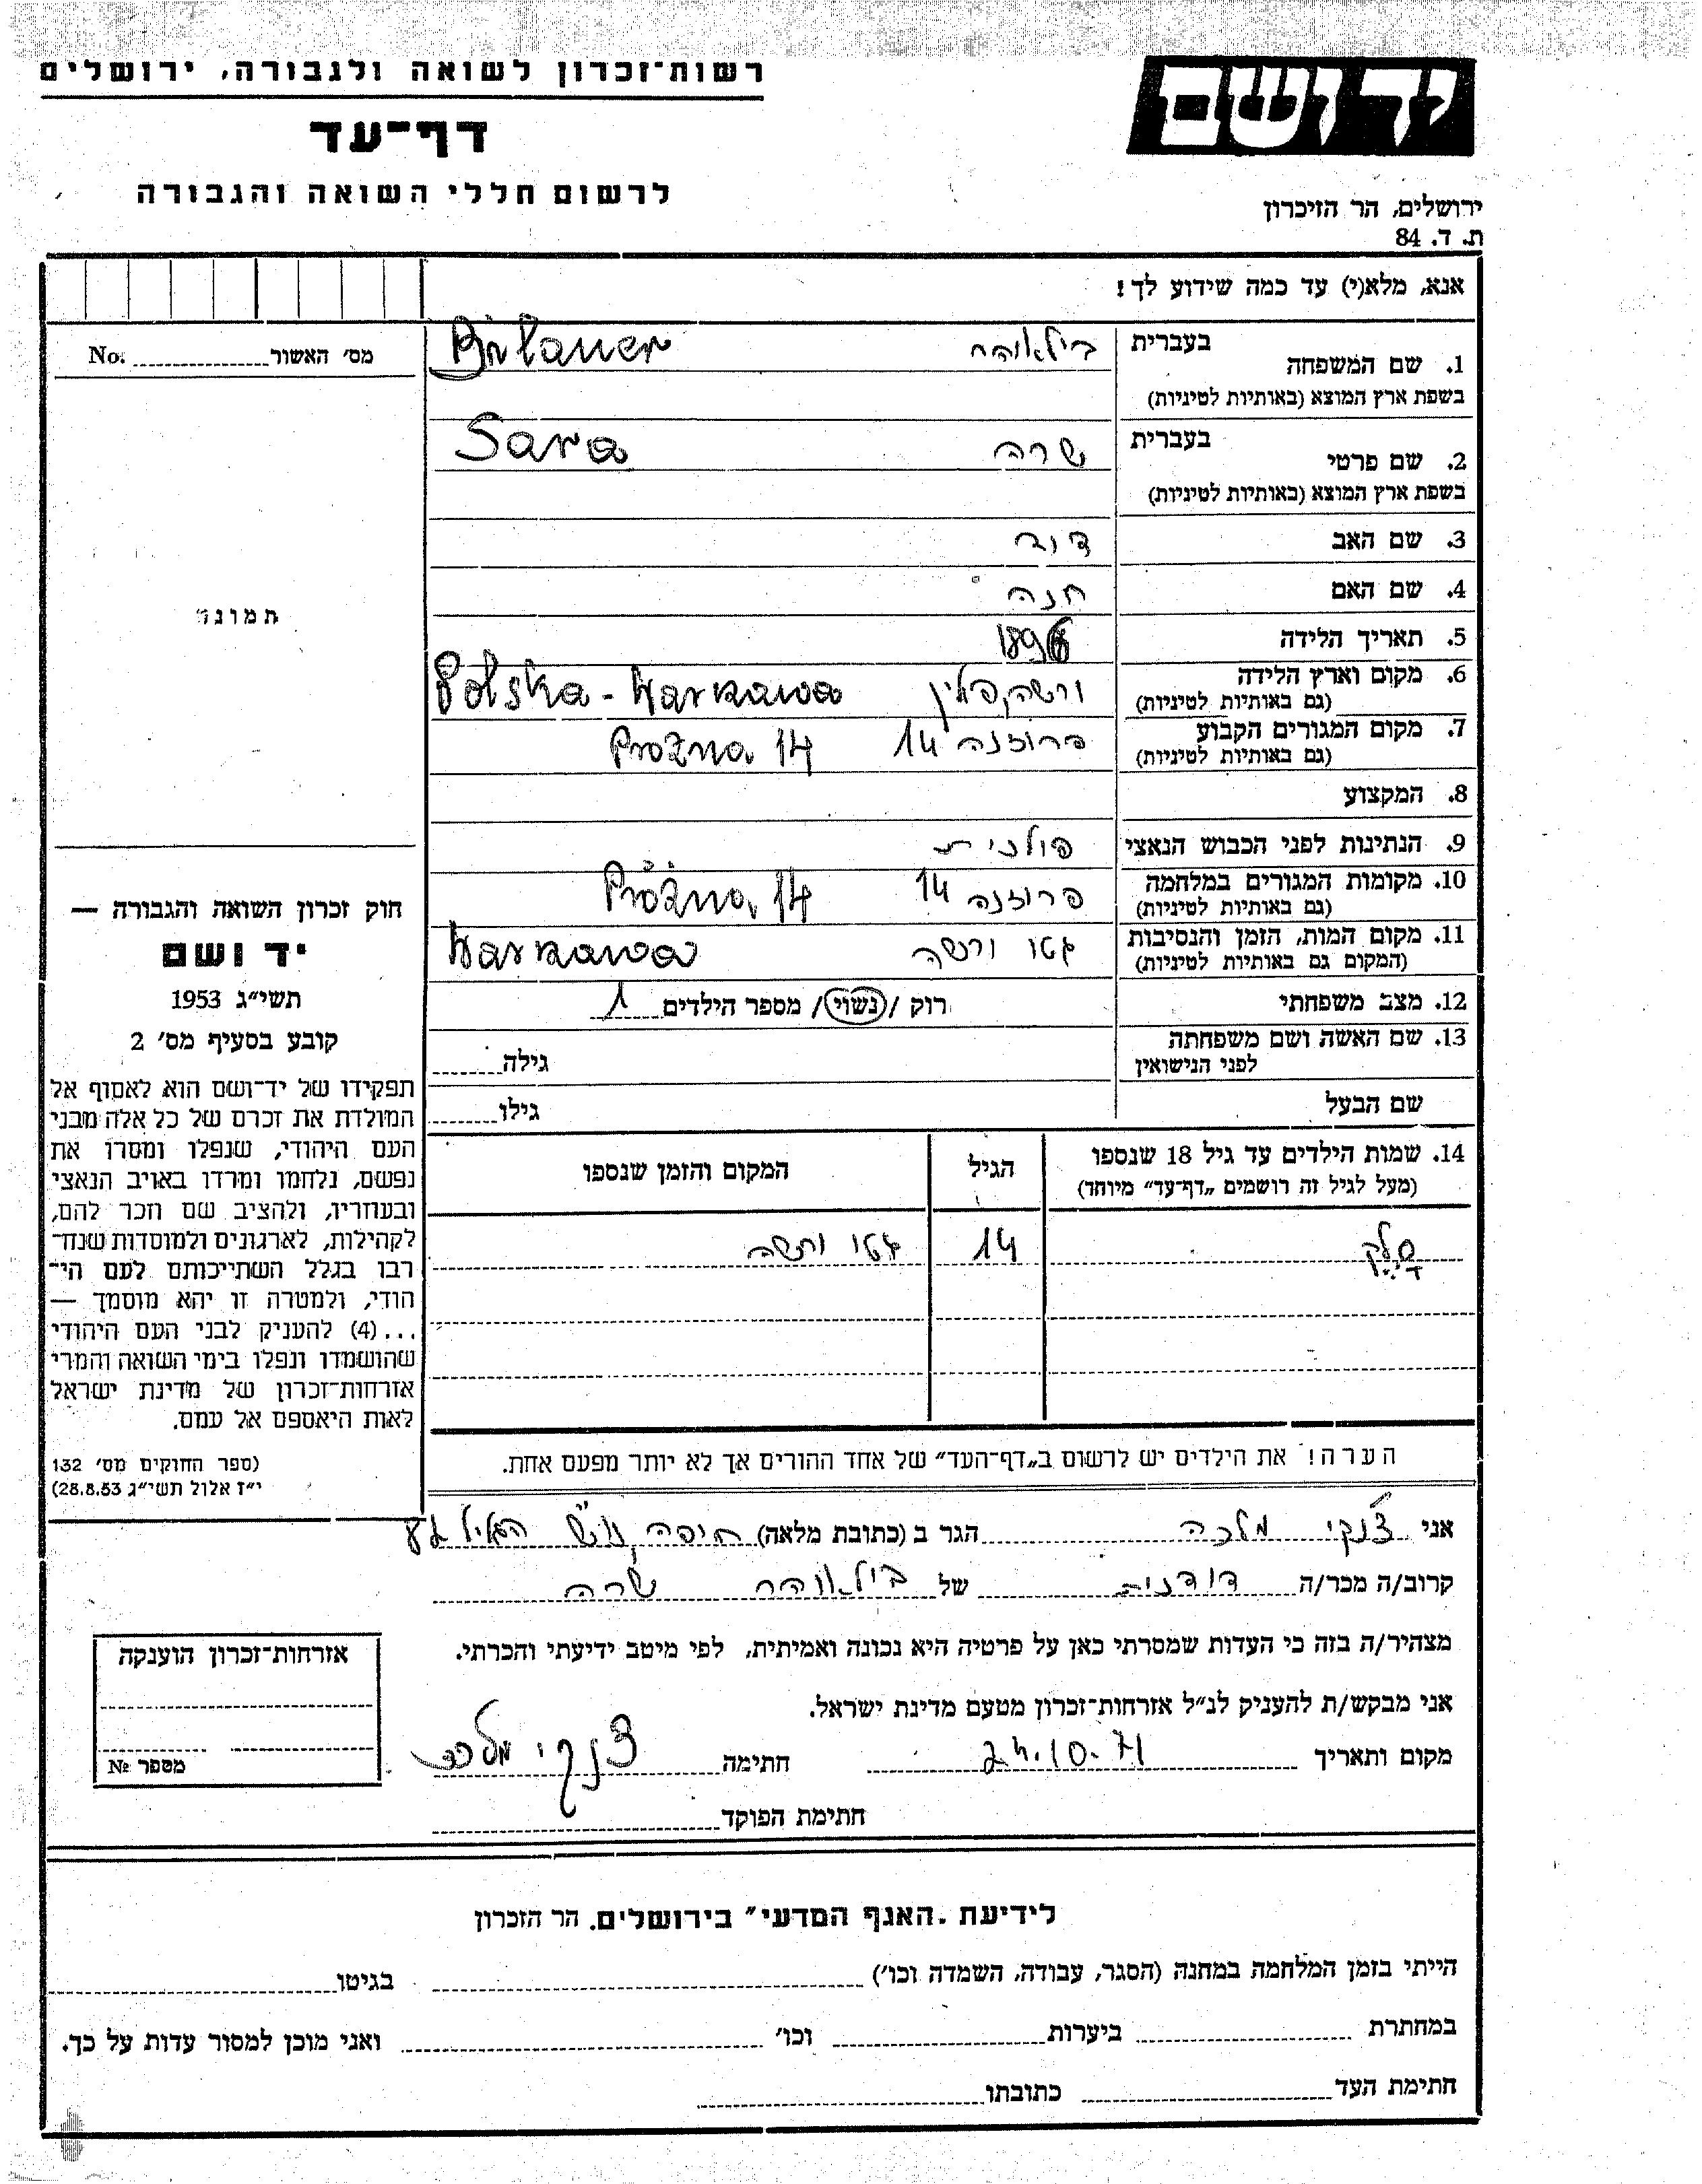 רשות־זכרון לשואה ולגבורה, ירושלים
דף־עד
לרשום חללי השואה והגבורה
יד ושם
ירושלים, הר הזיכרון
ת. ד. 84
אנא, מלא(י) עד כמה שידוע לך!
מס' האשור No.
תמונה
חוק זכרון השואה והגבורה —
יד ושם
תשי״ג 1953
קובע בסעיף מס' 2
תפקידו של יד־ושם הוא לאסוף אל
המולדת את זכרם של כל אלה מבני
העם היהודי, שנפלו ומסרו את
נפשם, נלחמו ומרדו באויב הנאצי
ובעוזריו, ולהציב שם וזכר להם,
לקהילות, לארגונים ולמוסדות שנח־
רבו בגלל השתייכותם לעם הי־
הודי, ולמטרה זו יהא מוסמך —
...(4) להעניק לבני העם היהודי
שהושמדו ונפלו בימי השואה והמרי
אזרחות־זכרון של מדינת ישראל
לאות היאספם אל עמם.
(ספר החוקים מס' 132
י״ז אלול תשי״ג 28.8.53)
1. שם המשפחה בעברית בילאואר Bilauer
בשפת ארץ המוצא (באותיות לטיניות)
2. שם פרטי בעברית שרה Sara
בשפת ארץ המוצא (באותיות לטיניות)
3. שם האב דוד
4. שם האם חנה
5. תאריך הלידה 1896
6. מקום וארץ הלידה ורשה, פולין Polska - Warszawa
(גם באותיות לטיניות)
7. מקום המגורים הקבוע פרוזנה 14 Prożna 14
(גם באותיות לטיניות)
8. המקצוע
9. הנתינות לפני הכבוש הנאצי פולנית
10. מקומות המגורים במלחמה פרוזנה 14 Próżna 14
(גם באותיות לטיניות)
11. מקום המות, הזמן והנסיבות גטו ורשה Warszawa
(המקום גם באותיות לטיניות)
12. מצב משפחתי רוק / נשוי / מספר הילדים 1
13. שם האשה ושם משפחתה גילה
לפני הנישואין
שם הבעל גילו
14. שמות הילדים עד גיל 18 שנספו הגיל המקום והזמן שנספו
(מעל לגיל זה רושמים „דף־עד״ מיוחד)
14 גטו ורשה
הערה! את הילדים יש לרשום ב„דף־העד״ של אחד ההורים אך לא יותר מפעם אחת.
אני צ'נקי מלכה הגר ב (כתובת מלאה) חיפה
קרוב/ה מכר/ה דודנית של בילאואר שרה
מצהיר/ה בזה כי העדות שמסרתי כאן על פרטיה היא נכונה ואמיתית, לפי מיטב ידיעתי והכרתי.
אני מבקש/ת להעניק לנ״ל אזרחות־זכרון מטעם מדינת ישראל.
מקום ותאריך 24.10.71 חתימה צ'נקי מלכה
חתימת הפוקד
אזרחות־זכרון הוענקה
מספר №
לידיעת „האגף המדעי״ בירושלים, הר הזכרון
הייתי בזמן המלחמה במחנה (הסגר, עבודה, השמדה וכו') בגיטו
במחתרת ביערות וכו' ואני מוכן למסור עדות על כך.
חתימת העד כתובתו